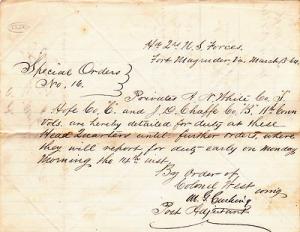 Hd Qrs U.S. Forces.
Fort Magruder, Va. March 13
Special Orders
No. 16.
Privates A. N. White Co. I.
Hofs Co. E. and J. D. Chaffe Co. B. 11th Conn
Vols. are hereby detailed for duty at these
Head Quarters until further orders, where
they will report for duty early on Monday
Morning the 14th inst.
By Order of
Colonel West comg
M. Cushing
Post Adjutant